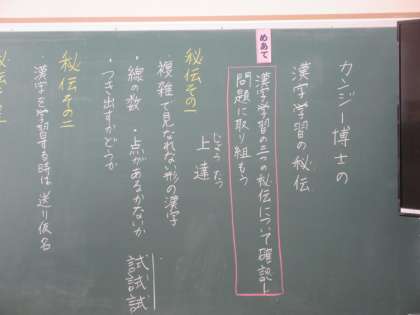 カンジー博士の
漢字学習の秘伝
めあて
漢字学習の三つの秘伝について確認し
問題に取り組もう
じょうたつ
上達
秘伝その一
複雑で見なれない形の漢字
・線の数 ・点があるかないか
・つき出すかどうか
試試試
秘伝その二
漢字を学習する時は送り仮名